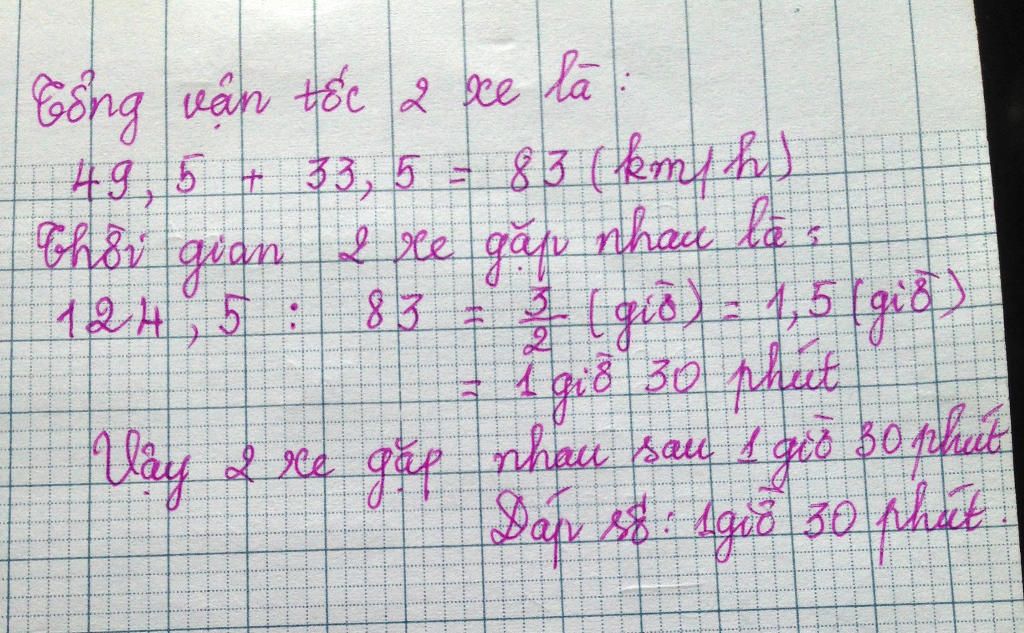 Tổng vận tốc 2 xe là :
49,5 + 33,5 = 83 (km/h)
Thời gian 2 xe gặp nhau là :
124,5 : 83 = 3/2 (giờ) = 1,5 (giờ)
= 1 giờ 30 phút
Vậy 2 xe gặp nhau sau 1 giờ 30 phút
Đáp số : 1 giờ 30 phút.